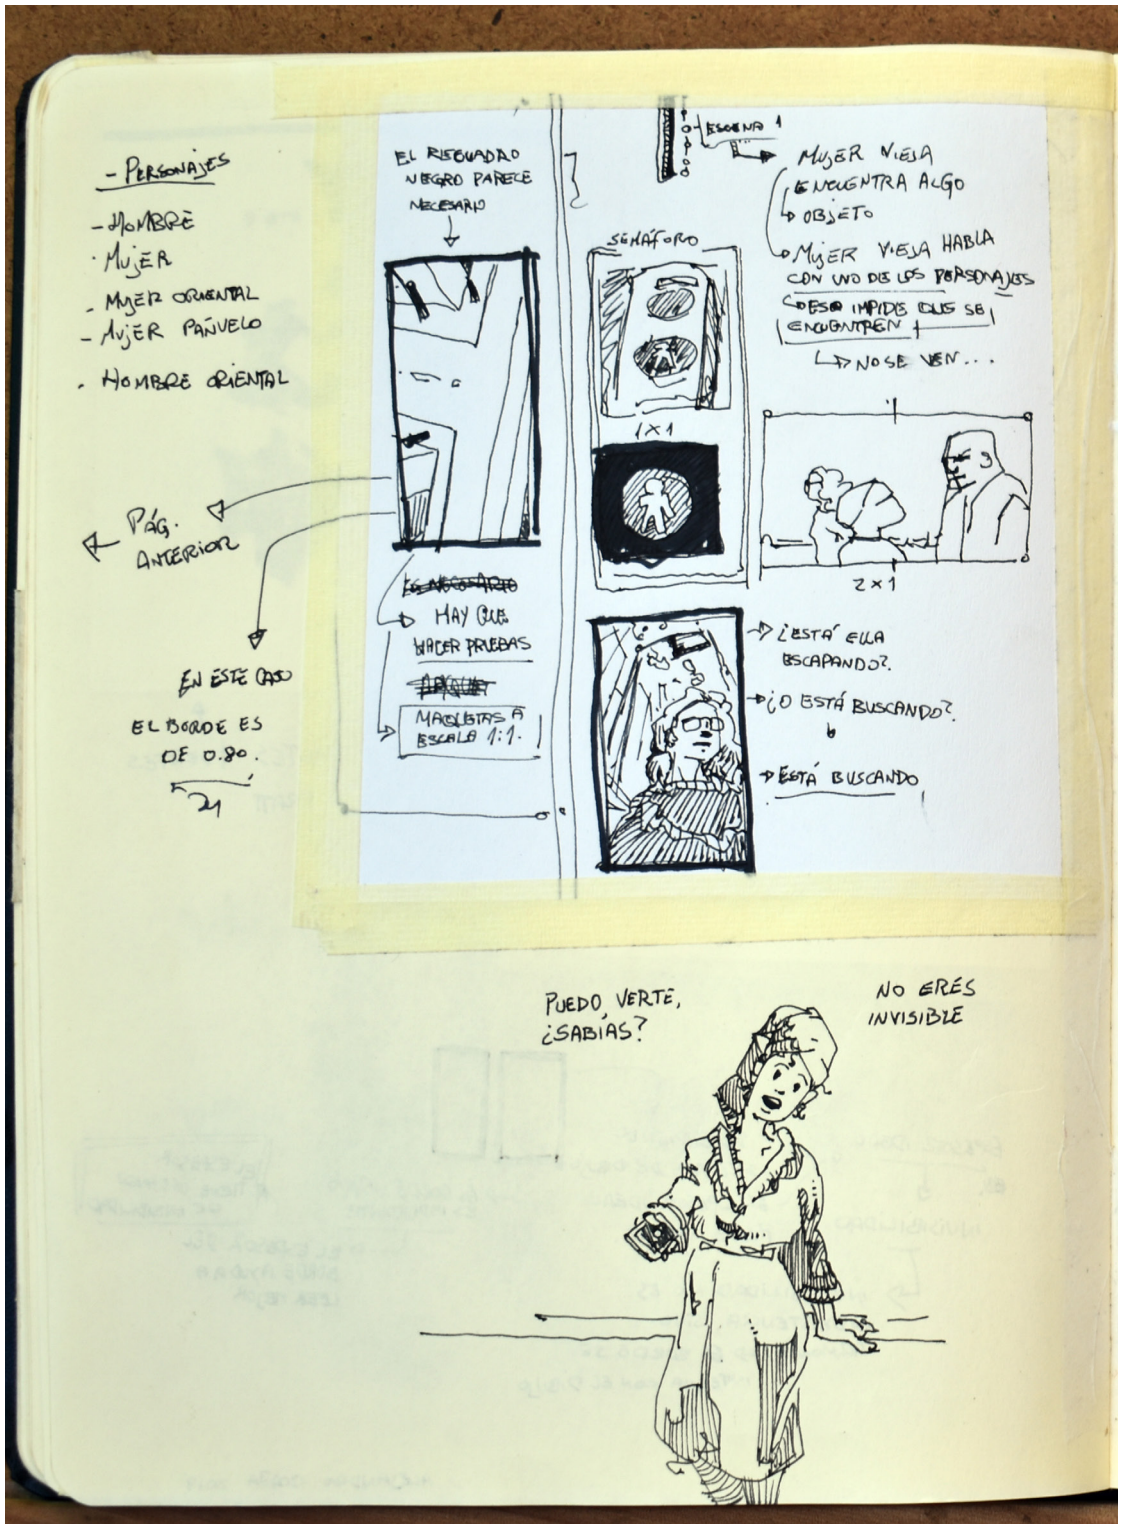 - PERSONAJES
- HOMBRE
· MUJER
- MUJER ORIENTAL
- MUJER PAÑUELO
· HOMBRE ORIENTAL
PÁG.
ANTERIOR
EN ESTE CASO
EL BORDE ES
DE 0.80.
EL RECUADRO
NEGRO PARECE
NECESARIO
ES NECESARIO
HAY QUE
HACER PRUEBAS
MAQUETAS A
ESCALA 1:1.
ESCENA 1
SEMÁFORO
1X1
MUJER VIEJA
ENCUENTRA ALGO
OBJETO
MUJER VIEJA HABLA
CON UNO DE LOS PERSONAJES
ESO IMPIDE QUE SE
ENCUENTREN
NO SE VEN...
2X1
¿ESTÁ ELLA
ESCAPANDO?
¿O ESTÁ BUSCANDO?
ESTÁ BUSCANDO
PUEDO VERTE,
¿SABÍAS?
NO ERES
INVISIBLE